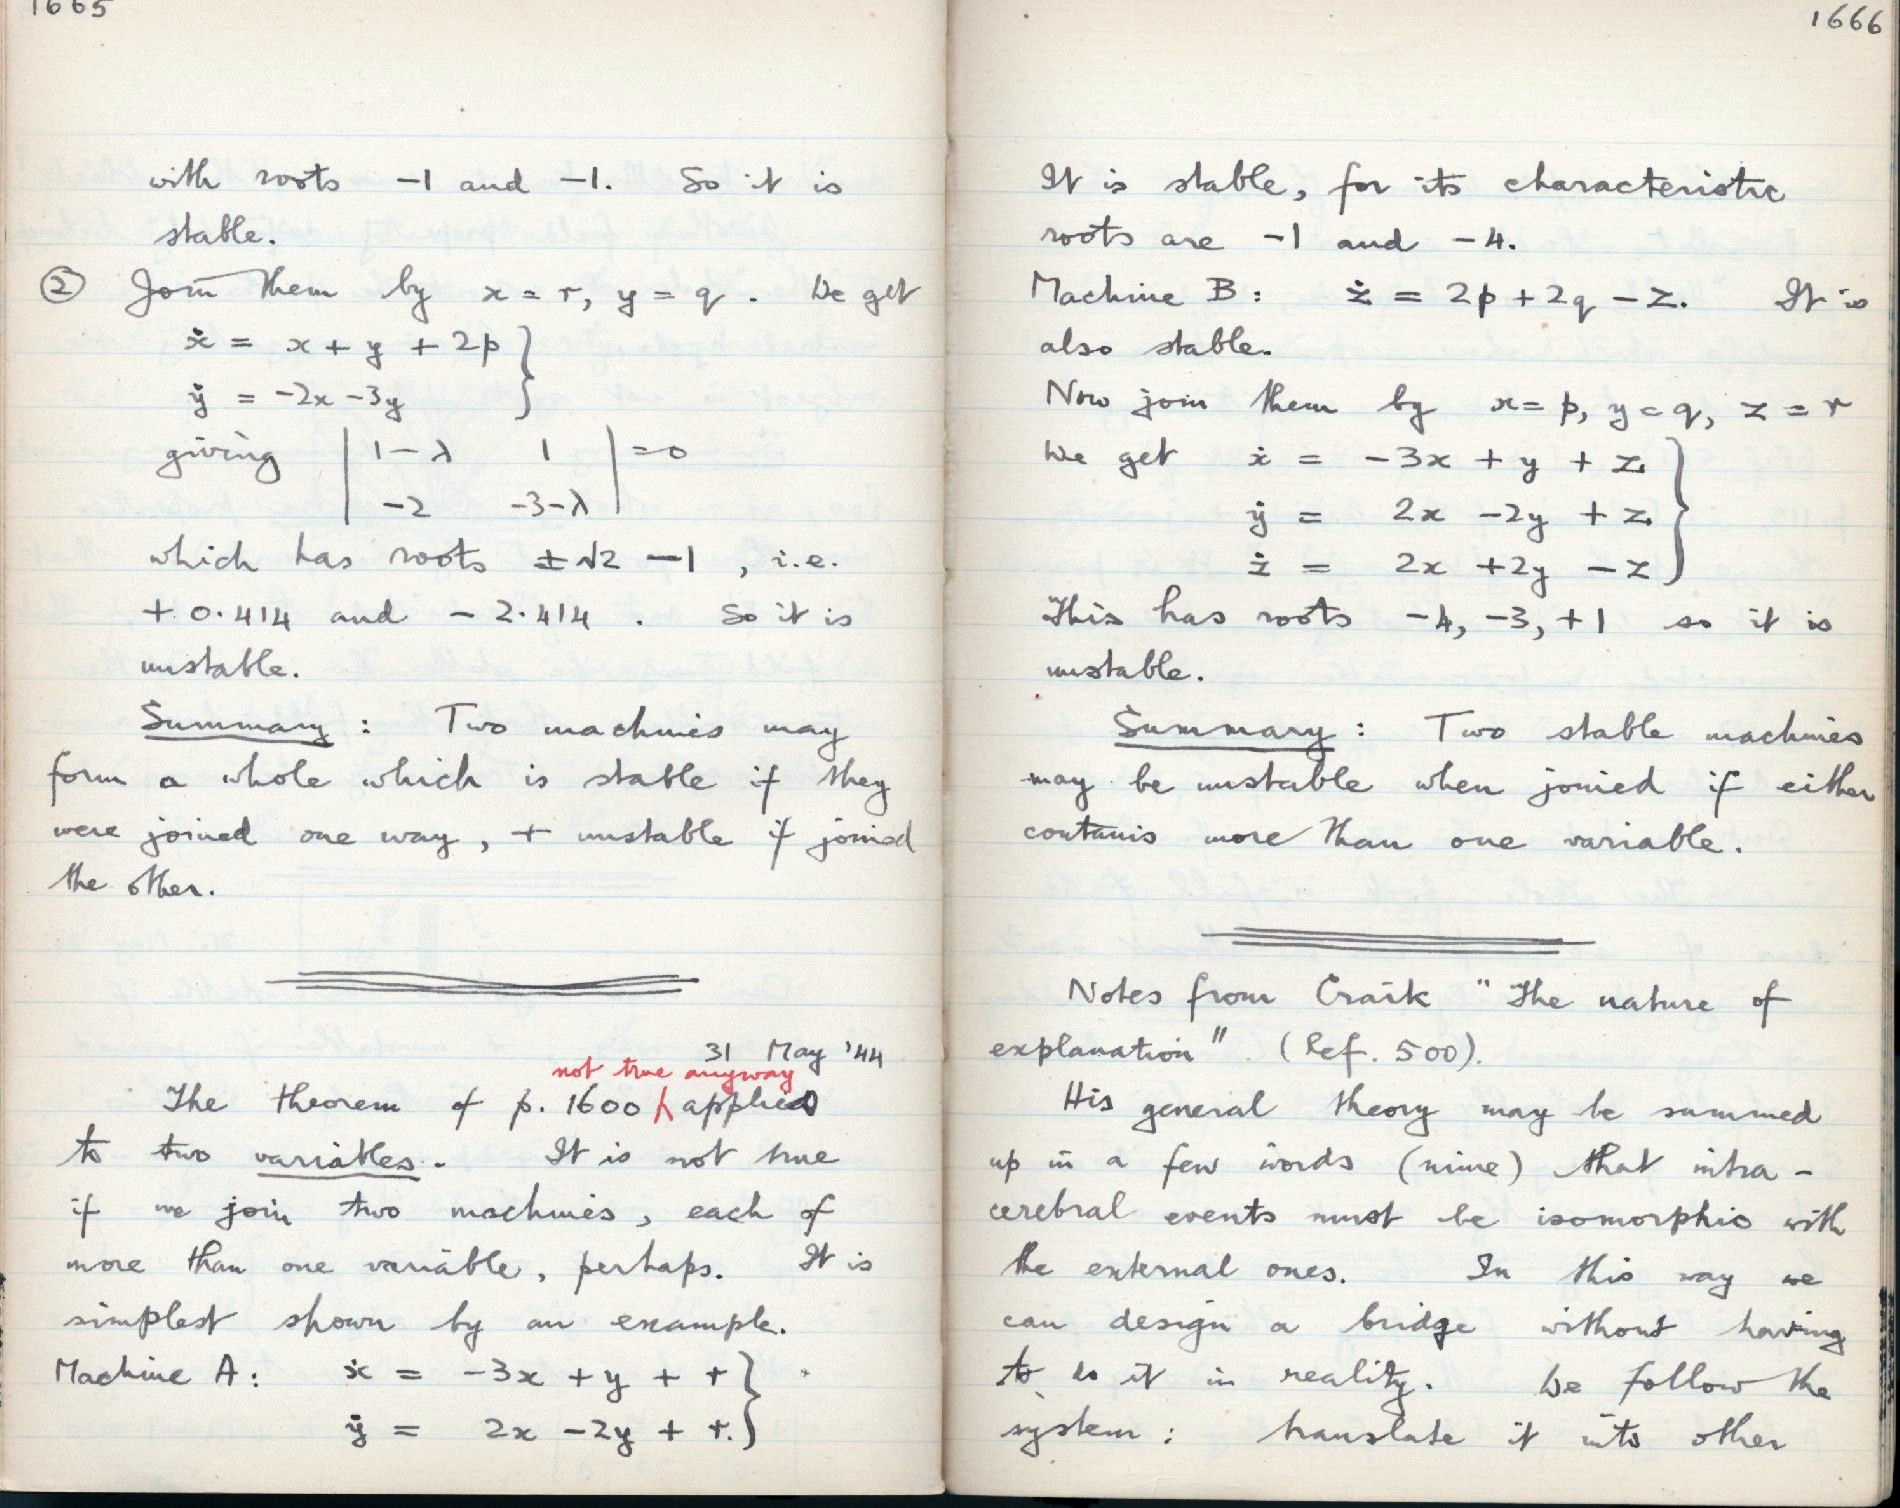 1665
with roots -1 and -1. So it is
stable.
② Join them by x = r, y = q. We get
ẋ = x + y + 2p }
ẏ = -2x -3y
giving | 1-λ 1 | = 0
-2 -3-λ
which has roots ±√2 -1, i.e.
+ 0.414 and - 2.414. So it is
unstable.
Summary: Two machines may
form a whole which is stable if they
were joined one way, + unstable if joined
the other.
31 May '44
not true anyway
The theorem of p. 1600 applies
to two variables. It is not true
if we join two machines, each of
more than one variable, perhaps. It is
simplest shown by an example.
Machine A: ẋ = -3x + y + r }
ẏ = 2x - 2y + r.
1666
It is stable, for its characteristic
roots are -1 and -4.
Machine B: ż = 2p + 2q - z. It is
also stable.
Now join them by x = p, y = q, z = r
We get ẋ = -3x + y + z }
ẏ = 2x -2y + z
ż = 2x +2y - z
This has roots -4, -3, +1 so it is
unstable.
Summary: Two stable machines
may be unstable when joined if either
contains more than one variable.
Notes from Craik "The nature of
explanation" (Ref. 500).
His general theory may be summed
up in a few words (mine) that intra-
cerebral events must be isomorphic with
the external ones. In this way we
can design a bridge without having
to do it in reality. We follow the
system: translate it into other